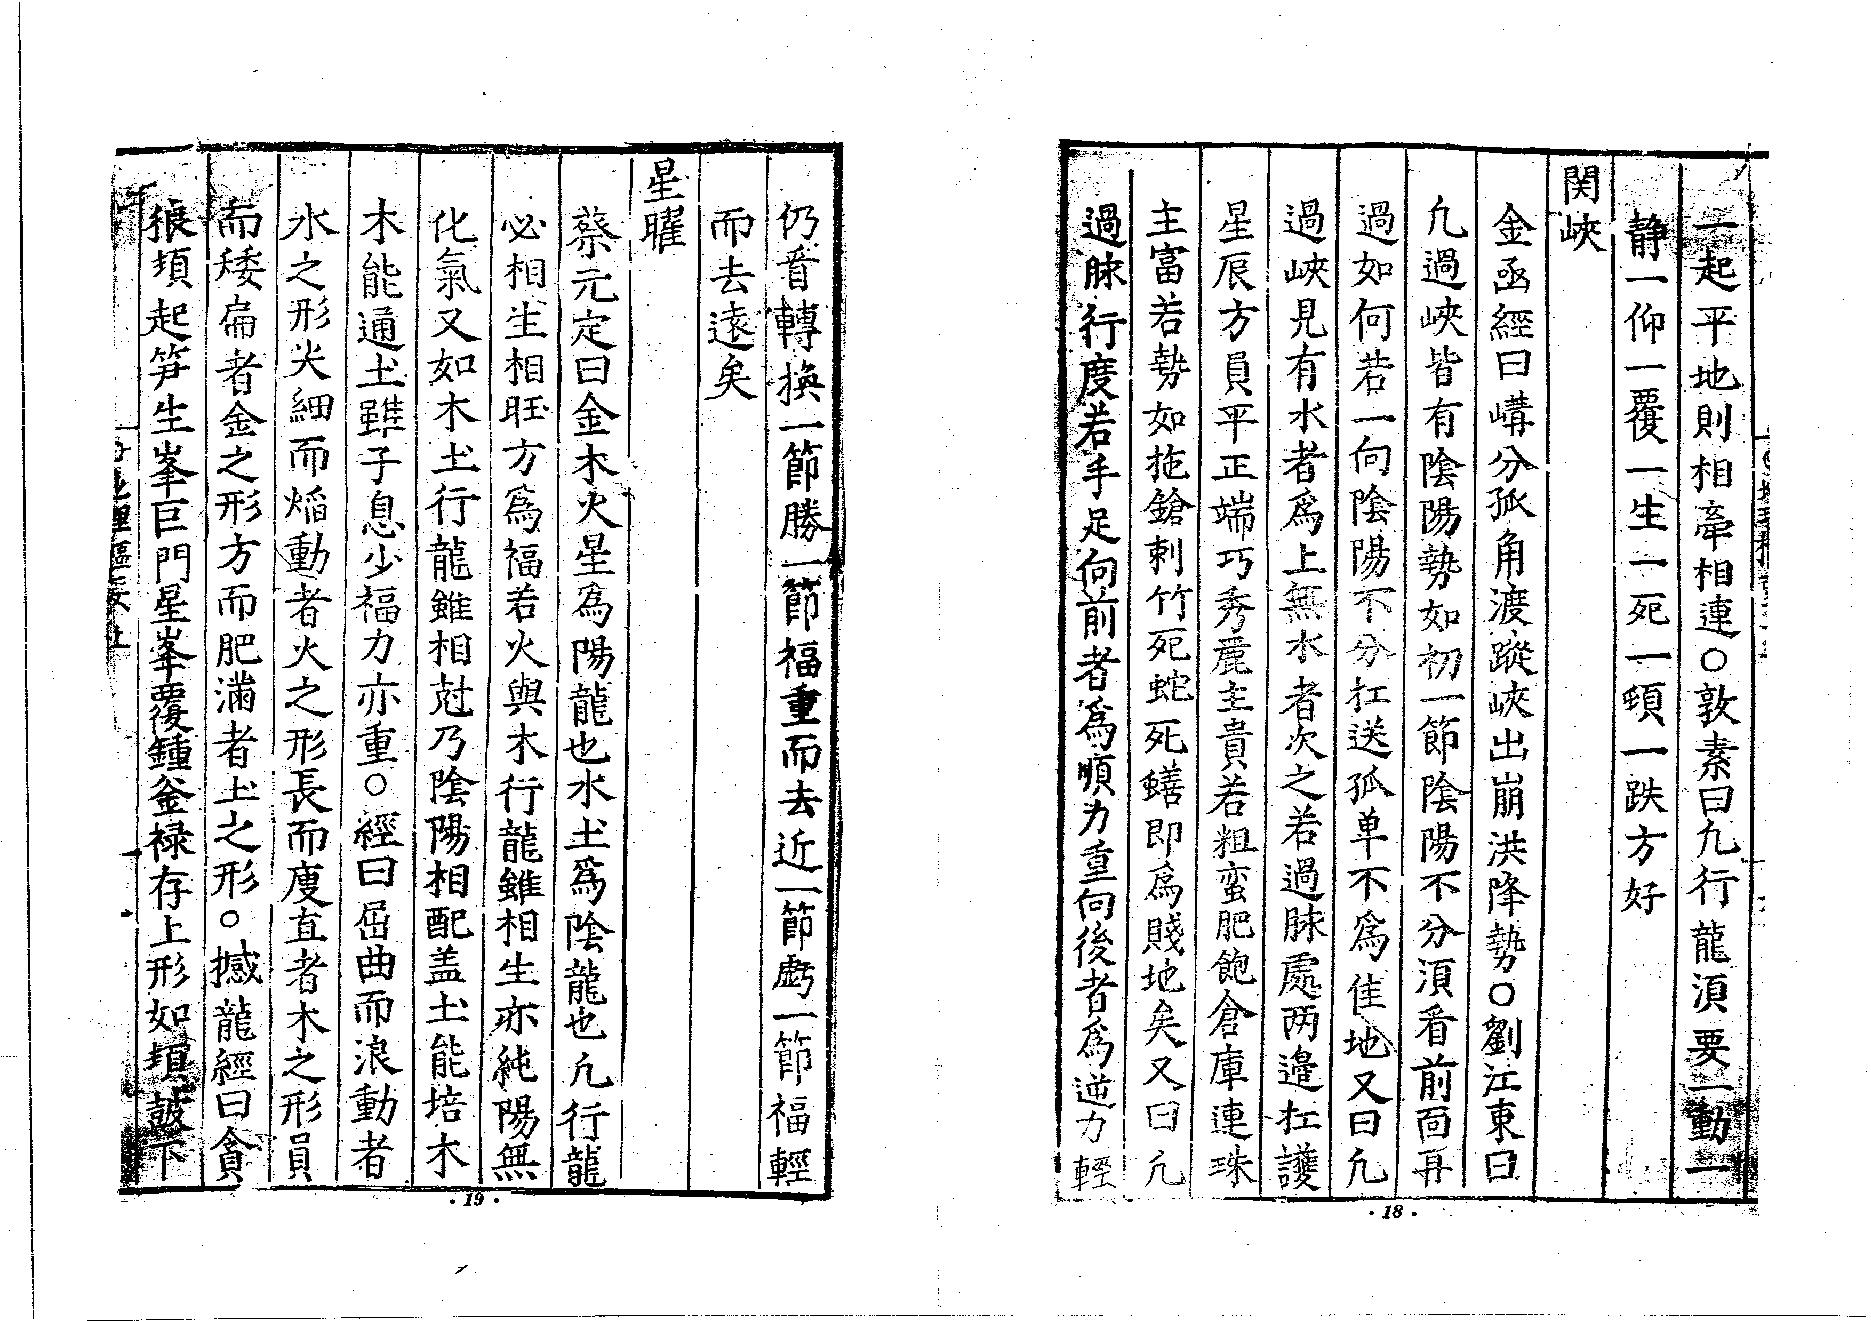 一起平地則相牽相連○敦素曰凢行龍湏要一動一
静一仰一覆一生一死一頓一跌方好
関峽
金函經曰嶙分孤角渡蹤峽出崩洪降勢○劉江東曰
凢過峽皆有陰陽勢如初一節陰陽不分湏看前面再
過如何若一向陰陽不分扛送孤单不爲佳地又曰凢
過峽見有水者爲上無水者次之若過脉處两邉扛護
星辰方員平正端巧秀麗主貴若粗蛮肥飽倉庫連珠
主富若勢如拖鎗刺竹死蛇死鱔即爲賤地矣又曰凢
過脉行度若手足向前者爲順力重向後者爲逆力輕
·18·
仍看轉换一節勝一節福重而去近一節虧一節福輕
而去遠矣
星曜
蔡元定曰金木火星爲陽龍也水土爲陰龍也凢行龍
必相生相旺方爲福若火與木行龍雖相生亦純陽無
化氣又如木土行龍雖相尅乃陰陽相配盖土能培木
木能通土雖子息少福力亦重○經曰屈曲而浪動者
水之形尖細而熖動者火之形長而廋直者木之形員
而矮扁者金之形方而肥滿者土之形○撼龍經曰貪
狼頓起笋生峯巨門星峯覆鍾釜禄存上形如頓皷下
·19·